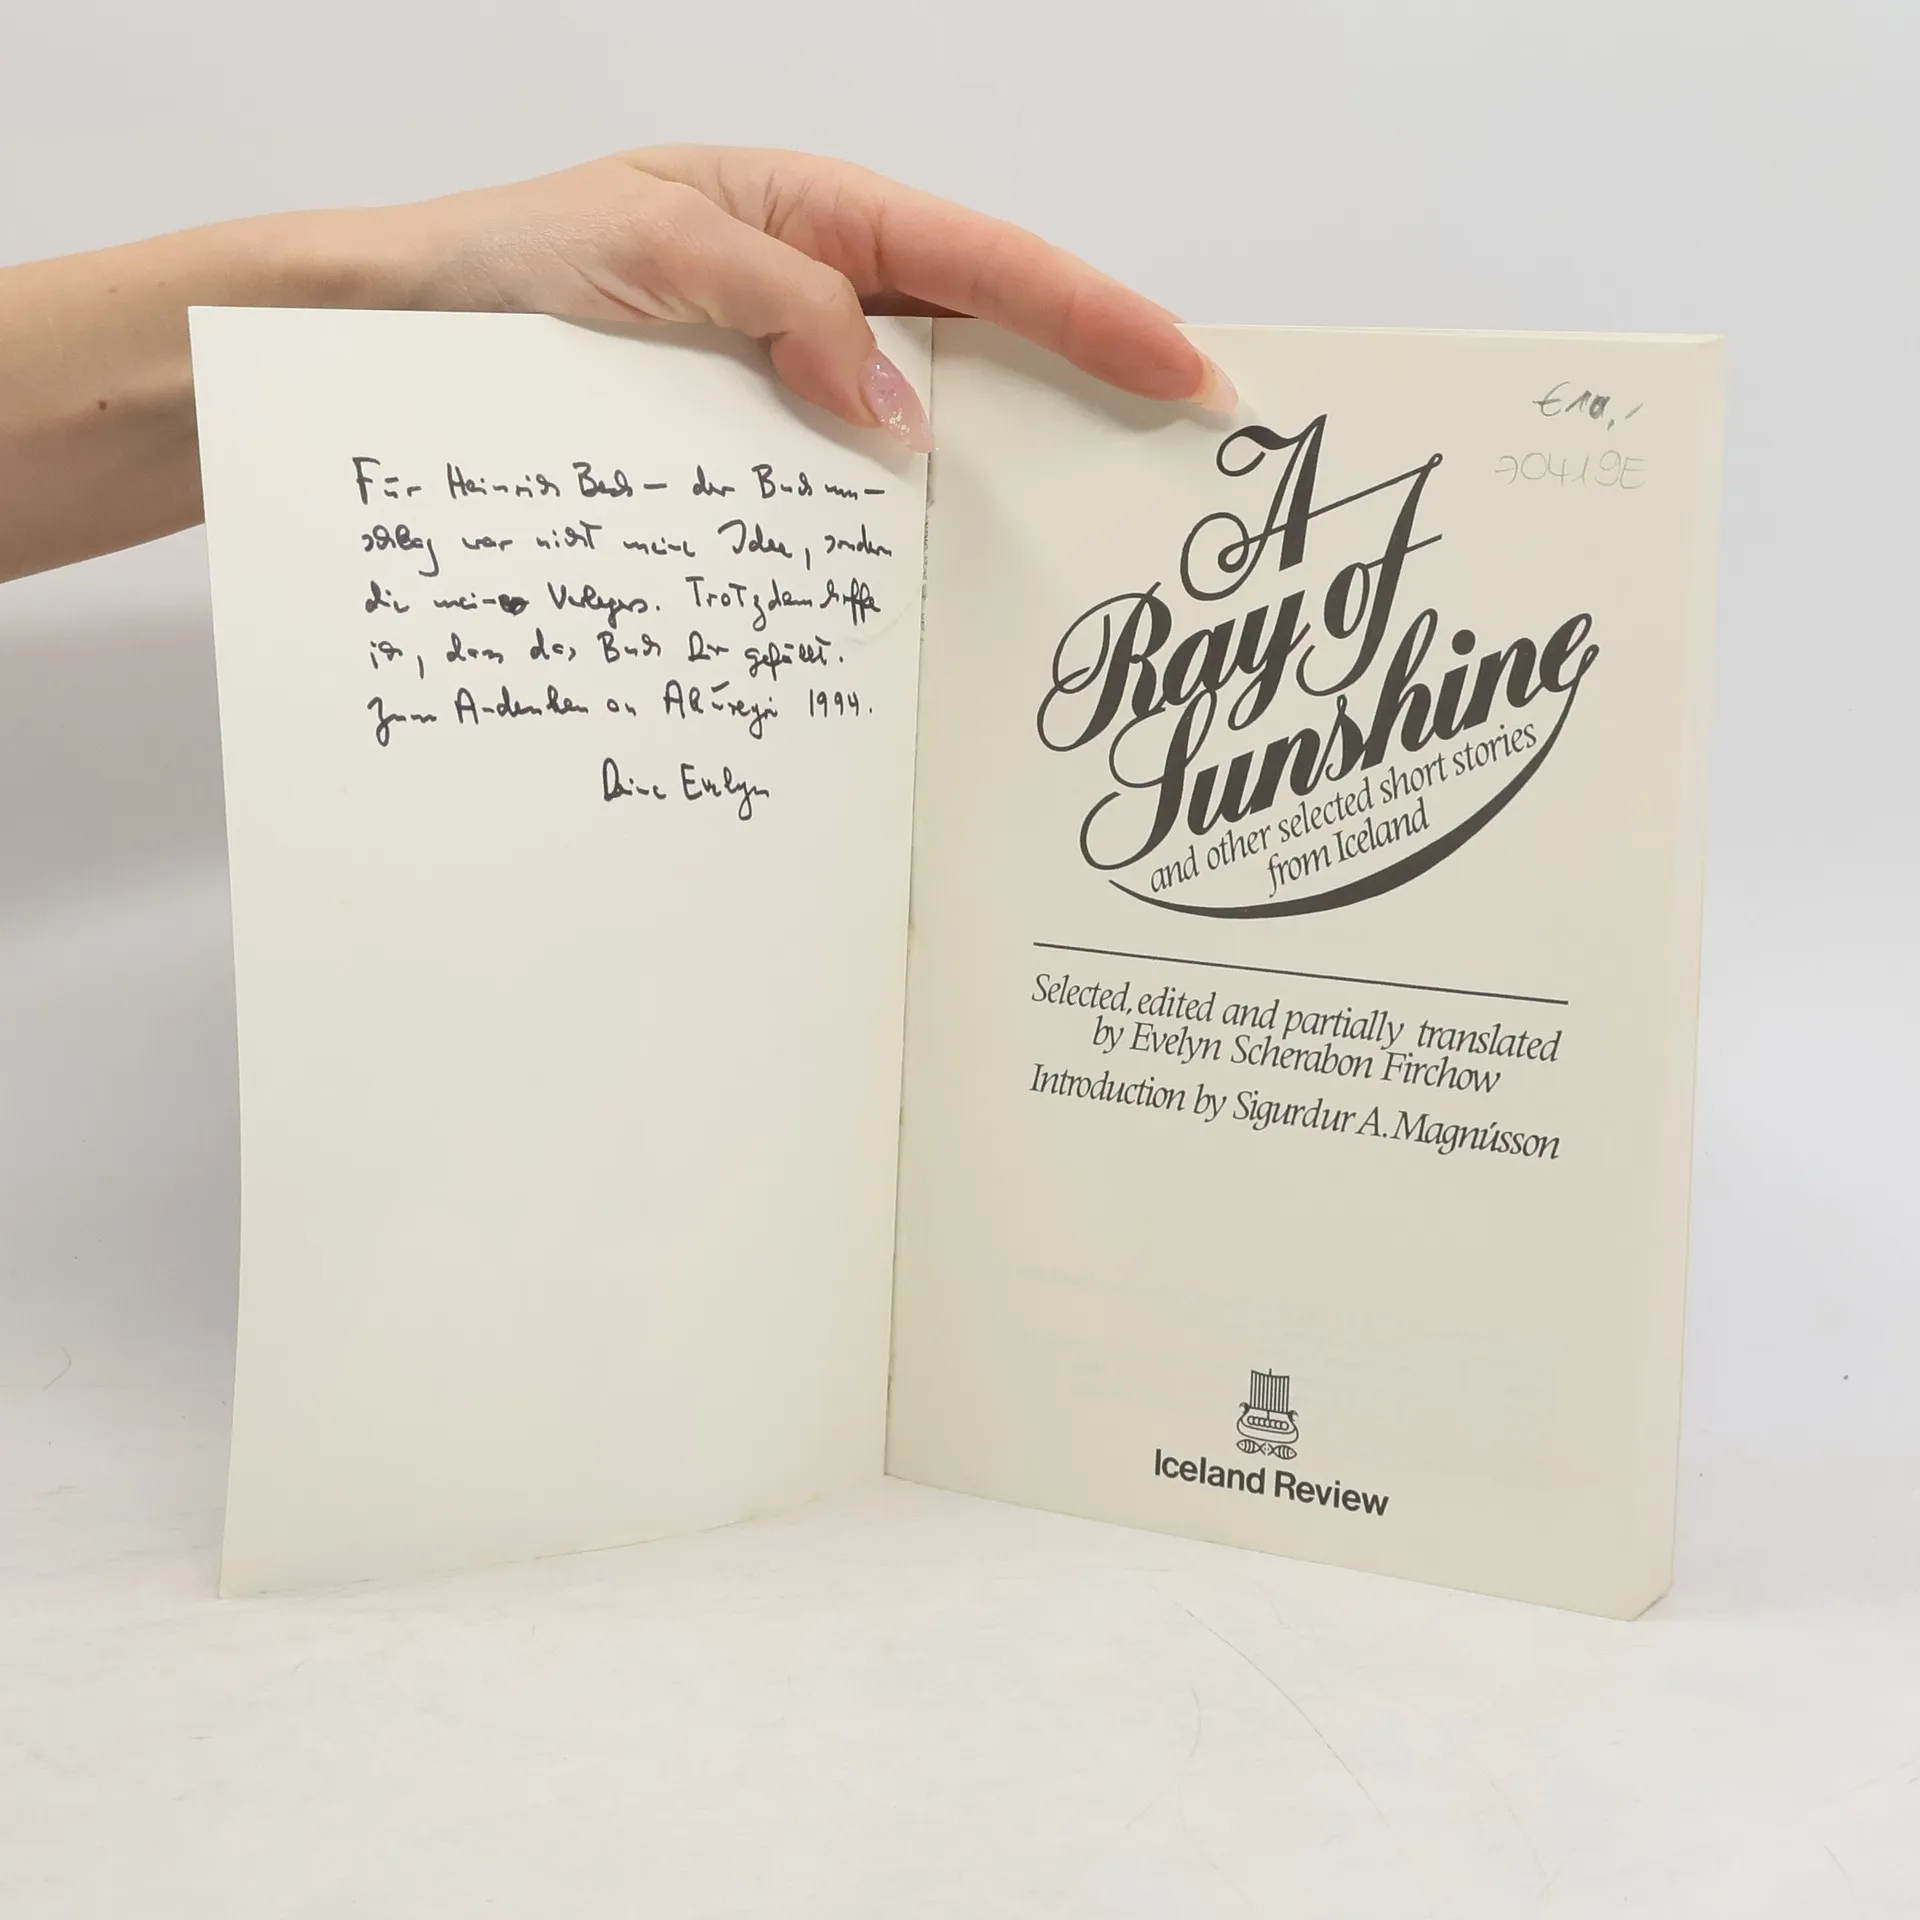 Für Heinrich Beck – der Buchum-
schlag war nicht meine Idee, sondern
die meines Verlegers. Trotzdem hoffe
ich, dass das Buch Dir gefällt.
Zum Andenken an Akureyri 1994.
Deine Evelyn
€10,-
70419E
A
Ray of
Sunshine
and other selected short stories
from Iceland
Selected, edited and partially translated
by Evelyn Scherabon Firchow
Introduction by Sigurdur A. Magnússon
Iceland Review